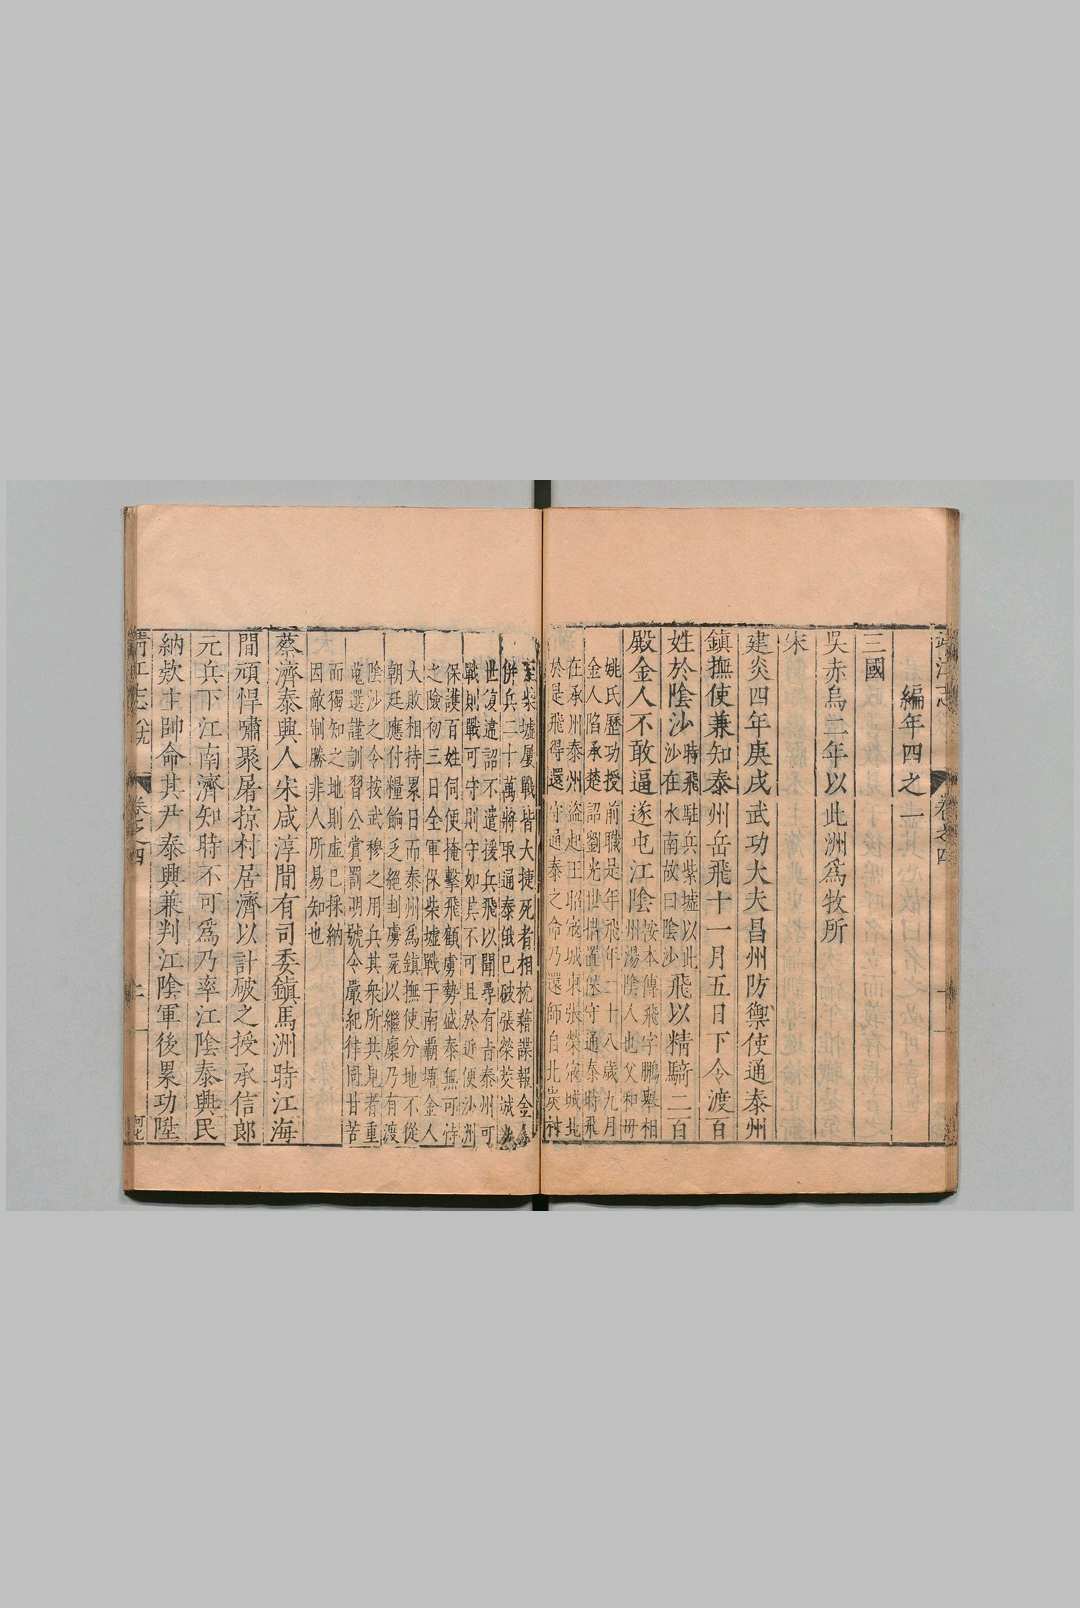 靖江志
卷之四
一
編年四之一
三國
吳赤烏二年以此洲爲牧所
宋
建炎四年庚戌武功大夫昌州防禦使通泰州
鎮撫使兼知泰州岳飛十一月五日下令渡百
姓於陰沙時飛駐兵紫墟以此
沙在水南故曰陰沙飛以精騎二百
殿金人不敢逼遂屯江陰按本傳飛字鵬舉相
州湯陰人也父和母
姚氏歷功授前職是年飛年二十八歲九月
金人陷承楚詔劉光世措置保守通泰時飛
在承州泰州盜起王昭寇城東張榮寇城北
於是飛得還守通泰之命乃還師自北炭村
至柴墟屢戰皆大捷死者相枕藉諜報金
併兵二十萬將取通泰俄已破張榮茭城
世復違詔不遣援兵飛以聞尋有旨泰州可
戰則戰可守則守如其不可且於近便沙洲
保護百姓伺便掩擊飛顧虜勢盛泰無可恃
之險初三日全軍保柴墟戰于南霸塘金人
大敗相持累日而泰州爲鎮撫使分地不從
朝廷應付糧餉乏絕刲虜屍以繼廩乃有渡
陰沙之令按武穆之用兵其衆所共見者重
蒐選謹訓習公賞罰明號令嚴紀律同甘苦
而獨知之地則虛已採納
因敵制勝非人所易知也
蔡濟泰興人宋咸淳間有司委鎮馬洲時江海
間頑悍嘯聚屠掠村居濟以計破之授承信郎
元兵下江南濟知時不可爲乃率江陰泰興民
納欵主帥命其尹泰興兼判江陰軍後果功陞
靖江志
卷之四
二